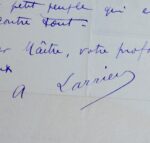 petit peuple qui
contre tout -
Maître, votre prof
A Larrieu